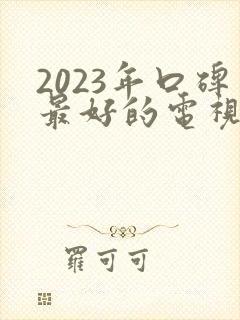 2023年口碑
最好的電視
羅可可